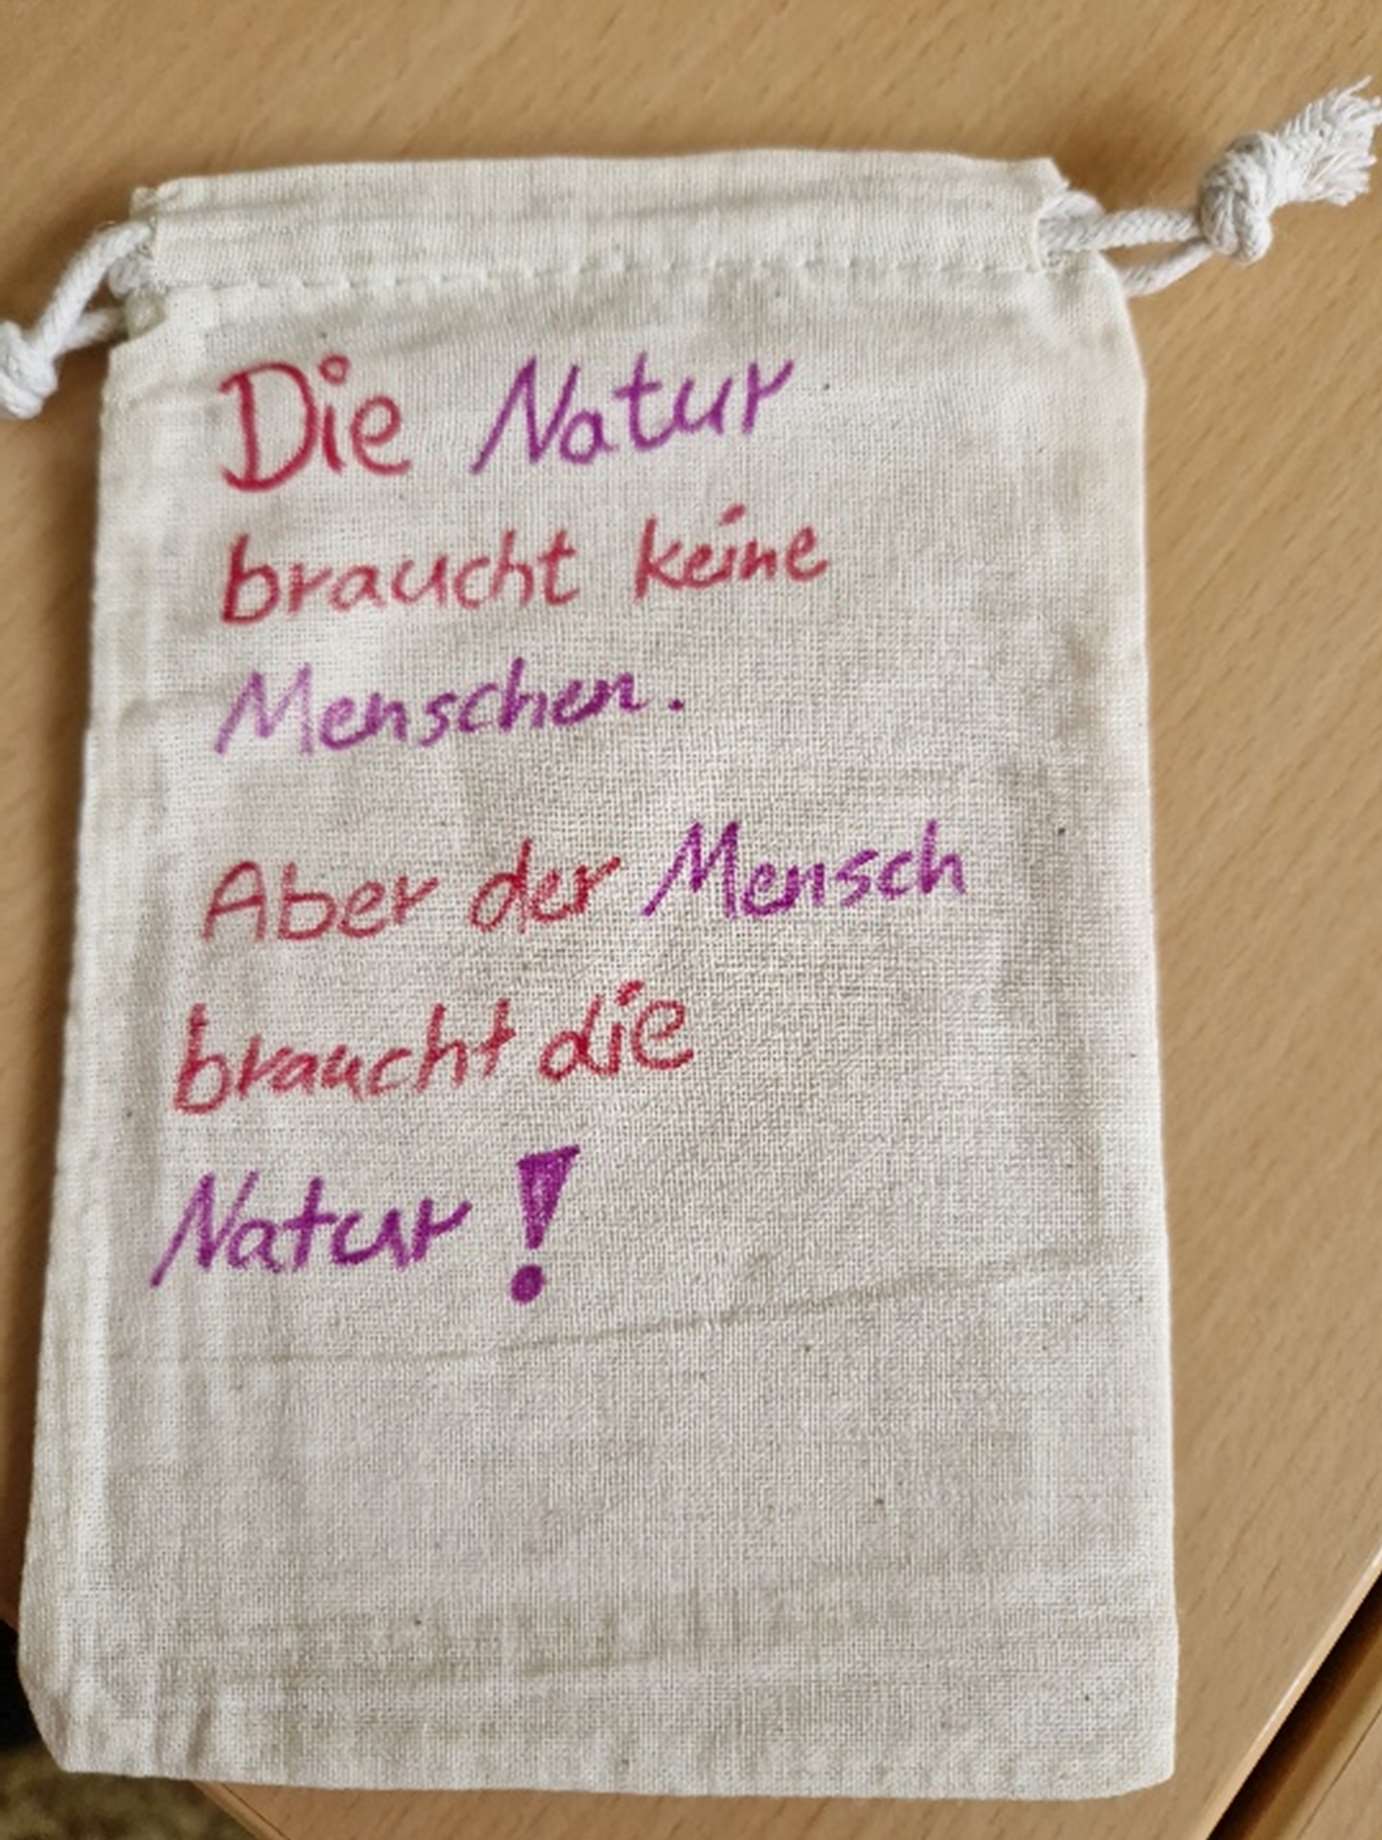 Die Natur
braucht keine
Menschen.
Aber der Mensch
braucht die
Natur!